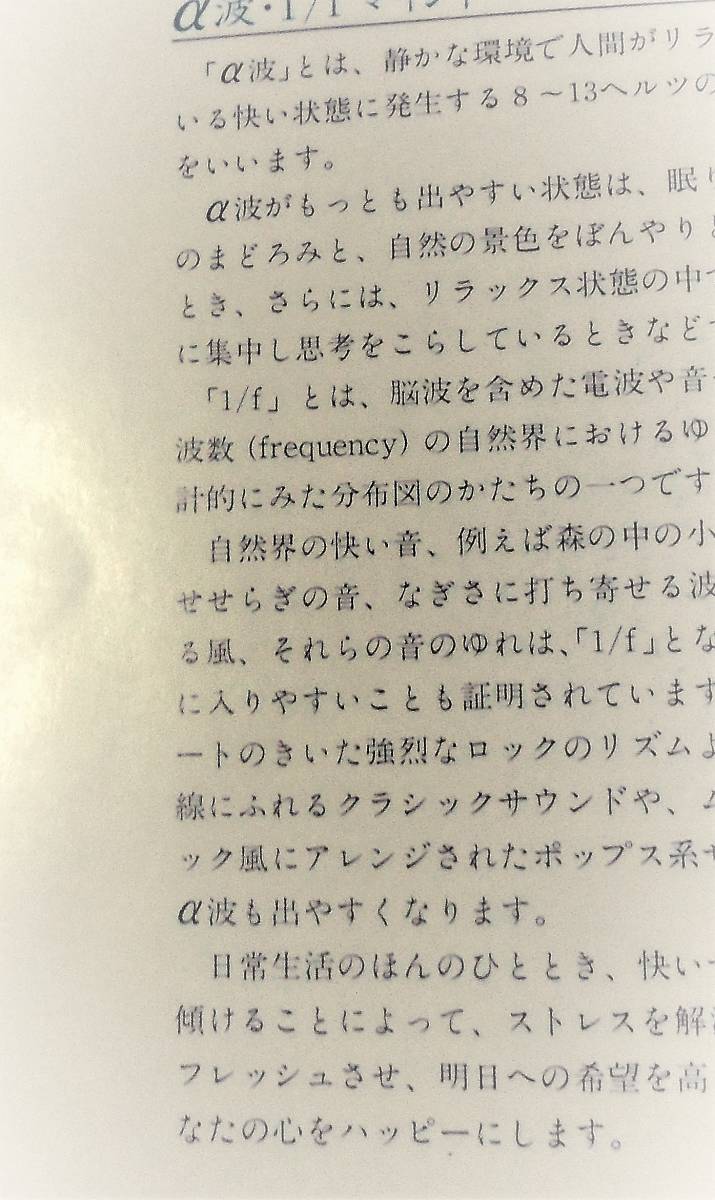 α波・1/fマインド
「α波」とは、静かな環境で人間がリラ
いる快い状態に発生する8〜13ヘルツの
をいいます。
α波がもっとも出やすい状態は、眠り
のまどろみと、自然の景色をぼんやりと
とき、さらには、リラックス状態の中で
に集中し思考をこらしているときなどで
「1/f」とは、脳波を含めた電波や音
波数(frequency)の自然界におけるゆ
計的にみた分布図のかたちの一つです
自然界の快い音、例えば森の中の小
せせらぎの音、なぎさに打ち寄せる波
る風、それらの音のゆれは、「1/f」とな
に入りやすいことも証明されています
ートのきいた強烈なロックのリズムよ
線にふれるクラシックサウンドや、ム
ック風にアレンジされたポップス系サ
α波も出やすくなります。
日常生活のほんのひととき、快い
傾けることによって、ストレスを解消
フレッシュさせ、明日への希望を高
なたの心をハッピーにします。